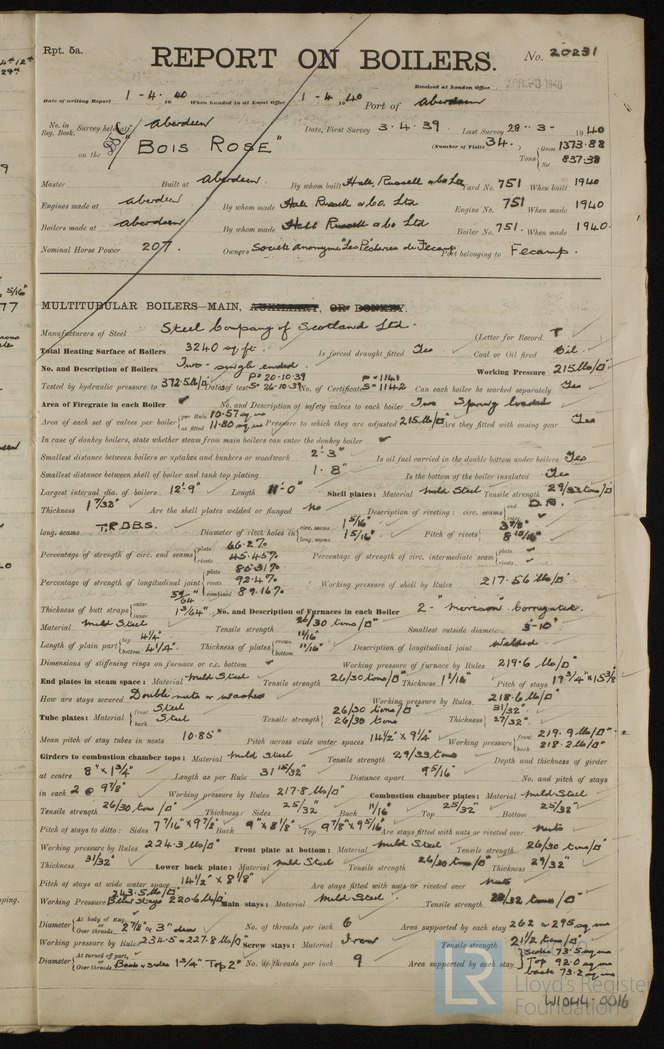 Rpt. 5a.
REPORT ON BOILERS.
No. 20231
Received at London Office
Date of writing Report 1 - 4 - 1940 When handed in at Local Office 1 - 4 - 1940 Port of Aberdeen
No. in Reg. Book. Survey held at Aberdeen Date, First Survey 3.4.39 Last Survey 28-3-1940
on the "BOIS ROSE" (Number of Visits 34.) Tons Gross 1373.88 Net 837.38
Master Built at Aberdeen By whom built Hall, Russell & Co. Ltd Yard No. 751 When built 1940
Engines made at Aberdeen By whom made Hall Russell & Co. Ltd Engine No. 751 When made 1940
Boilers made at Aberdeen By whom made Hall Russell & Co Ltd Boiler No. 751. When made 1940.
Nominal Horse Power 207. Owners Société Anonyme "Les Pêcheries de Fecamp Port belonging to Fecamp.
MULTITUBULAR BOILERS—MAIN, AUXILIARY, OR DONKEY.
Manufacturers of Steel Steel Company of Scotland Ltd. (Letter for Record )
Total Heating Surface of Boilers 3240 sq. ft. Is forced draught fitted Yes Coal or Oil fired Oil.
No. and Description of Boilers Two - single ended. Working Pressure 215 lbs/□"
Tested by hydraulic pressure to 372.5 lb/□" Date of test P= 20-10-39 S= 26.10.39 No. of Certificate P= 1141 S= 1142 Can each boiler be worked separately Yes
Area of Firegrate in each Boiler No. and Description of safety valves to each boiler Two Spring loaded
Area of each set of valves per boiler per Rule 10.57 sq ins as fitted 11.80 sq ins Pressure to which they are adjusted 215 lb/□" Are they fitted with easing gear Yes
In case of donkey boilers, state whether steam from main boilers can enter the donkey boiler
Smallest distance between boilers or uptakes and bunkers or woodwork 2'-3" Is oil fuel carried in the double bottom under boilers Yes
Smallest distance between shell of boiler and tank top plating 1'-8" Is the bottom of the boiler insulated Yes
Largest internal dia. of boilers 12'-9" Length 11'-0" Shell plates: Material Mild Steel Tensile strength 29/33 tons/□"
Thickness 1 7/32" Are the shell plates welded or flanged No Description of riveting: circ. seams end D.R. inter
long. seams T.R.D.B.S. Diameter of rivet holes in circ. seams 1 5/16" long. seams 1 5/16" Pitch of rivets 3 7/8" 8 15/16"
Percentage of strength of circ. end seams plate 66.2% rivets 45.45% Percentage of strength of circ. intermediate seam plate rivets
Percentage of strength of longitudinal joint plate 85.31% rivets 92.4% combined 89.16% Working pressure of shell by Rules 217.56 lbs/□"
Thickness of butt straps outer 59/64" inner 1 3/64" No. and Description of Furnaces in each Boiler 2 - "Morrison" corrugated.
Material Mild Steel Tensile strength 26/30 tons/□" Smallest outside diameter 3'-10"
Length of plain part top 4 1/4" bottom 4 1/4" Thickness of plates crown 11/16" bottom 11/16" Description of longitudinal joint Welded
Dimensions of stiffening rings on furnace or c.c. bottom Working pressure of furnace by Rules 219.6 lbs/□"
End plates in steam space: Material Mild Steel Tensile strength 26/30 tons/□" Thickness 1 1/16" Pitch of stays 19 3/4" x 15 3/8
How are stays secured Double nuts & washers Working pressure by Rules 218.6 lbs/□"
Tube plates: Material front Steel back Steel Tensile strength 26/30 tons/□" 26/30 tons Thickness 31/32" 27/32"
Mean pitch of stay tubes in nests 10.85" Pitch across wide water spaces 14 1/2" x 9 1/4" Working pressure front 219.9 lbs/□" back 218.2 lbs/□"
Girders to combustion chamber tops: Material Mild Steel Tensile strength 29/33 tons Depth and thickness of girder
at centre 8" x 1 3/4" Length as per Rule 31 15/32" Distance apart 9 5/16" No. and pitch of stays
in each 2 @ 9 7/8" Working pressure by Rules 217.8 lbs/□" Combustion chamber plates: Material Mild Steel
Tensile strength 26/30 tons/□" Thickness: Sides 25/32" Back 11/16" Top 25/32" Bottom 25/32"
Pitch of stays to ditto: Sides 7 7/16" x 9 7/8" Back 9" x 8 1/8" Top 9 7/8" x 9 5/16" Are stays fitted with nuts or riveted over Nuts
Working pressure by Rules 224.3 lbs/□" Front plate at bottom: Material Mild Steel Tensile strength 26/30 tons/□"
Thickness 31/32" Lower back plate: Material Mild Steel Tensile strength 26/30 tons/□" Thickness 29/32"
Pitch of stays at wide water space 14 1/2" x 8 1/8" Are stays fitted with nuts or riveted over Nuts
Working Pressure 243.5 lbs/□" 220.6 lbs/□" Main stays: Material Mild Steel Tensile strength 28/32 tons/□"
Diameter At body of stay, or Over threads 2 7/8" & 3" diam No. of threads per inch 6 Area supported by each stay 262 & 295 sq ins
Working pressure by Rules 234.5 & 227.8 lbs/□" Screw stays: Material Iron Tensile strength 21 1/2 tons/□"
Diameter At turned off part, or Over threads Back & sides 1 3/4" Top 2" No. of threads per inch 9 Area supported by each stay Sides 73.5 sq ins Top 92.0 sq ins back 73.2 sq ins
LR
Lloyd's Register
Foundation
W1044-0016